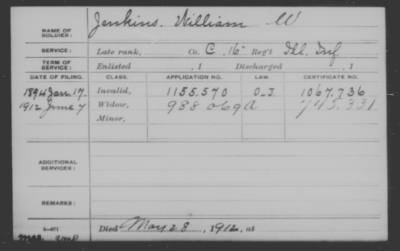 NAME OF SOLDIER: Jenkins. William W
SERVICE: Late rank, Co. C, 16" Reg't Ill. Inf
TERM OF SERVICE: Enlisted , 1 Discharged , 1
DATE OF FILING. CLASS. APPLICATION NO. LAW. CERTIFICATE NO.
1894 Jan. 17. Invalid, 1155.570 O_J. 1067.736
1912 June 7 Widow, 988.069 A 745.331
Minor,
ADDITIONAL SERVICES:
REMARKS:
Died May 28, 1912, at